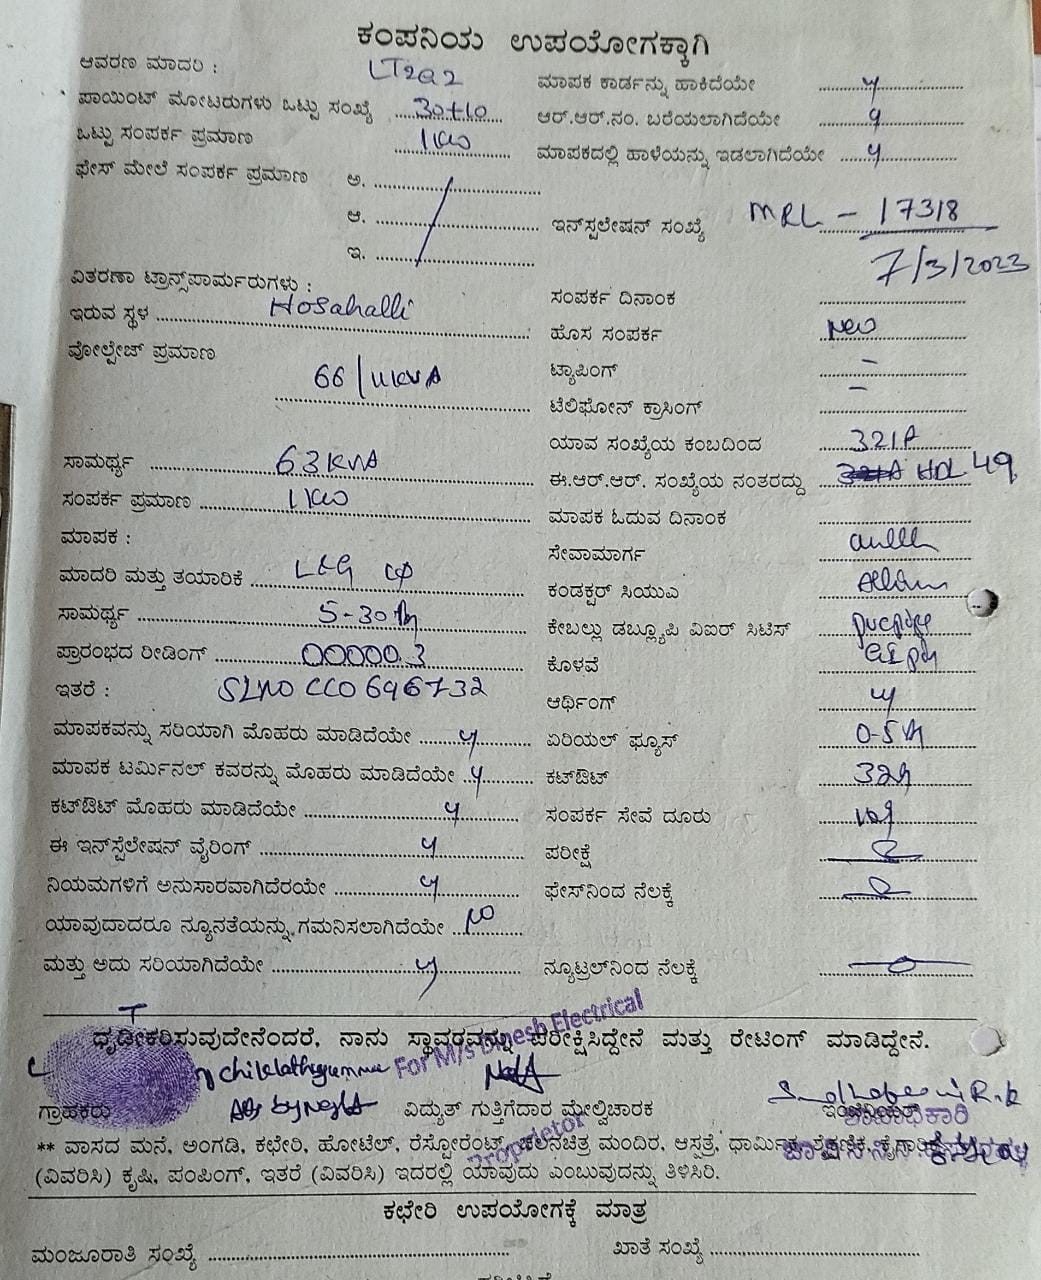 ಕಂಪನಿಯ ಉಪಯೋಗಕ್ಕಾಗಿ
ಆವರಣ ಮಾದರಿ : LT2a2
ಮಾಪಕ ಕಾರ್ಡನ್ನು ಹಾಕಿದೆಯೇ y
ಪಾಯಿಂಟ್ ಮೋಟರುಗಳು ಒಟ್ಟು ಸಂಖ್ಯೆ 30+10
ಆರ್.ಆರ್.ನಂ. ಬರೆಯಲಾಗಿದೆಯೇ y
ಒಟ್ಟು ಸಂಪರ್ಕ ಪ್ರಮಾಣ 1kw
ಮಾಪಕದಲ್ಲಿ ಹಾಳೆಯನ್ನು ಇಡಲಾಗಿದೆಯೇ y
ಫೇಸ್ ಮೇಲೆ ಸಂಪರ್ಕ ಪ್ರಮಾಣ ಅ.
ಆ.
ಇನ್‌ಸ್ಪಲೇಷನ್ ಸಂಖ್ಯೆ MRL - 17318
ಇ.
7/3/2023
ವಿತರಣಾ ಟ್ರಾನ್ಸ್‌ಪಾರ್ಮರುಗಳು :
ಸಂಪರ್ಕ ದಿನಾಂಕ
ಇರುವ ಸ್ಥಳ Hosahalli
ಹೊಸ ಸಂಪರ್ಕ New
ವೋಲ್ಟೇಜ್ ಪ್ರಮಾಣ
66/11KVA
ಟ್ಯಾಪಿಂಗ್ -
ಟೆಲಿಫೋನ್ ಕ್ರಾಸಿಂಗ್ -
ಯಾವ ಸಂಖ್ಯೆಯ ಕಂಬದಿಂದ 321A
ಸಾಮರ್ಥ್ಯ 63KVA
ಈ.ಆರ್.ಆರ್. ಸಂಖ್ಯೆಯ ನಂತರದ್ದು HDL 49
ಸಂಪರ್ಕ ಪ್ರಮಾಣ 1kw
ಮಾಪಕ ಓದುವ ದಿನಾಂಕ
ಮಾಪಕ :
ಸೇವಾಮಾರ್ಗ
ಮಾದರಿ ಮತ್ತು ತಯಾರಿಕೆ L&G
ಕಂಡಕ್ಟರ್ ಸಿಯುವಿ
ಸಾಮರ್ಥ್ಯ 5-30A
ಕೇಬಲ್ಲು ಡಬ್ಲ್ಯೂಪಿ ವಿಐರ್ ಸಿಟಿಸ್
ಪ್ರಾರಂಭದ ರೀಡಿಂಗ್ 00000.3
ಕೊಳವೆ
ಇತರೆ : SLNO CC0696732
ಆರ್ಥಿಂಗ್ y
ಮಾಪಕವನ್ನು ಸರಿಯಾಗಿ ಮೊಹರು ಮಾಡಿದೆಯೇ y
ಏರಿಯಲ್ ಫ್ಯೂಸ್ 0-5A
ಮಾಪಕ ಟರ್ಮಿನಲ್ ಕವರನ್ನು ಮೊಹರು ಮಾಡಿದೆಯೇ y
ಕಟ್‌ಔಟ್ 32A
ಕಟ್‌ಔಟ್ ಮೊಹರು ಮಾಡಿದೆಯೇ y
ಸಂಪರ್ಕ ಸೇವೆ ದೂರು
ಈ ಇನ್‌ಸ್ಪೆಲೇಷನ್ ವೈರಿಂಗ್ y
ಪರೀಕ್ಷೆ
ನಿಯಮಗಳಿಗೆ ಅನುಸಾರವಾಗಿದೆರಯೇ y
ಫೇಸ್‌ನಿಂದ ನೆಲಕ್ಕೆ
ಯಾವುದಾದರೂ ನ್ಯೂನತೆಯನ್ನು ಗಮನಿಸಲಾಗಿದೆಯೇ NO
ಮತ್ತು ಅದು ಸರಿಯಾಗಿದೆಯೇ y
ನ್ಯೂಟ್ರಲ್‌ನಿಂದ ನೆಲಕ್ಕೆ
ಧೃಡೀಕರಿಸುವುದೇನೆಂದರೆ, ನಾನು ಸ್ಥಾವರವನ್ನು ಪರೀಕ್ಷಿಸಿದ್ದೇನೆ ಮತ್ತು ರೇಟಿಂಗ್ ಮಾಡಿದ್ದೇನೆ.
For M/s Dinesh Electrical
Proprietor
ಗ್ರಾಹಕರು ವಿದ್ಯುತ್ ಗುತ್ತಿಗೆದಾರ ಮೇಲ್ವಿಚಾರಕ
** ವಾಸದ ಮನೆ, ಅಂಗಡಿ, ಕಛೇರಿ, ಹೋಟೆಲ್, ರೆಸ್ಟೋರೆಂಟ್, ಚಲನಚಿತ್ರ ಮಂದಿರ, ಆಸ್ಪತ್ರೆ, ಧಾರ್ಮಿಕ, ಶೈಕ್ಷಣಿಕ,
(ವಿವರಿಸಿ) ಕೃಷಿ, ಪಂಪಿಂಗ್, ಇತರೆ (ವಿವರಿಸಿ) ಇದರಲ್ಲಿ ಯಾವುದು ಎಂಬುವುದನ್ನು ತಿಳಿಸಿರಿ.
ಕಛೇರಿ ಉಪಯೋಗಕ್ಕೆ ಮಾತ್ರ
ಮಂಜೂರಾತಿ ಸಂಖ್ಯೆ
ಖಾತೆ ಸಂಖ್ಯೆ